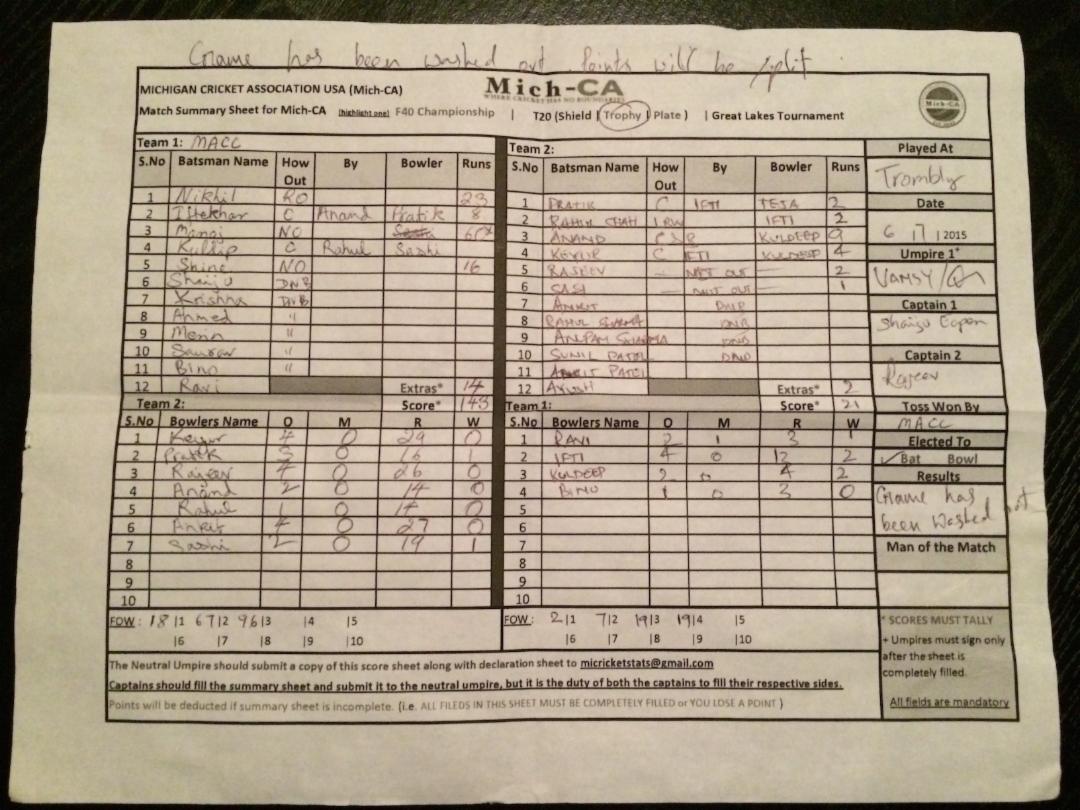 Game has been washed out. Points will be split.
MICHIGAN CRICKET ASSOCIATION USA (Mich-CA)
Mich-CA
WHERE CRICKET HAS NO BOUNDARIES
Mich-CA
Match Summary Sheet for Mich-CA (highlight one) F40 Championship | T20 (Shield | Trophy | Plate) | Great Lakes Tournament
Team 1: MACC
S.No Batsman Name How Out By Bowler Runs
1 Nikhil RO 23
2 Iftekhar C Anand Pratik 8
3 Manoj NO
4 Kuldip C Rahul Sashi
5 Shine NO 16
6 Shaiju DNB
7 Krishna DNB
8 Ahmed "
9 "
10 Saurav "
11 Bino "
12 Ravi Extras* 14
Score* 143
Team 2:
S.No Batsman Name How Out By Bowler Runs
1 PRATIK C IFTI TEJA 2
2 RAHUL SHAH LBW IFTI 2
3 ANAND KULDEEP 9
4 KEYUR C IFTI KULDEEP 4
5 RAJEEV — NOT OUT — 2
6 SASI — NOT OUT — 1
7 ANKIT DNB
8 RAHUL SHARMA DNB
9 ANUPAM SHARMA DNB
10 SUNIL PATEL DNB
11 ANKIT PATEL
12 AYUSH Extras* 2
Score* 21
Team 2:
S.No Bowlers Name O M R W
1 Keyur 4 0 29 0
2 Pratik 3 0 16 1
3 Rajeev 4 0 26 0
4 Anand 2 0 14 0
5 Rahul 1 0 0
6 Ankit 4 0 27 0
7 Sashi 2 0 19 1
8
9
10
Team 1:
S.No Bowlers Name O M R W
1 RAVI 2 1 3 1
2 IFTI 4 0 12 2
3 KULDEEP 2 0 4 2
4 BINO 1 0 3 0
5
6
7
8
9
10
FOW: 18|1 67|2 96|3 |4 |5
|6 |7 |8 |9 |10
FOW: 2|1 7|2 19|3 19|4 |5
|6 |7 |8 |9 |10
Played At
Trombly
Date
6 | 7 | 2015
Umpire 1+
VAMSY/
Captain 1
Shaiju Eapen
Captain 2
Rajeev
Toss Won By
MACC
Elected To
✓Bat Bowl
Results
Game has
been Washed out
Man of the Match
* SCORES MUST TALLY
+ Umpires must sign only
after the sheet is
completely filled.
All fields are mandatory
The Neutral Umpire should submit a copy of this score sheet along with declaration sheet to micricketstats@gmail.com
Captains should fill the summary sheet and submit it to the neutral umpire, but it is the duty of both the captains to fill their respective sides.
Points will be deducted if summary sheet is incomplete. (i.e. ALL FILEDS IN THIS SHEET MUST BE COMPLETELY FILLED or YOU LOSE A POINT )